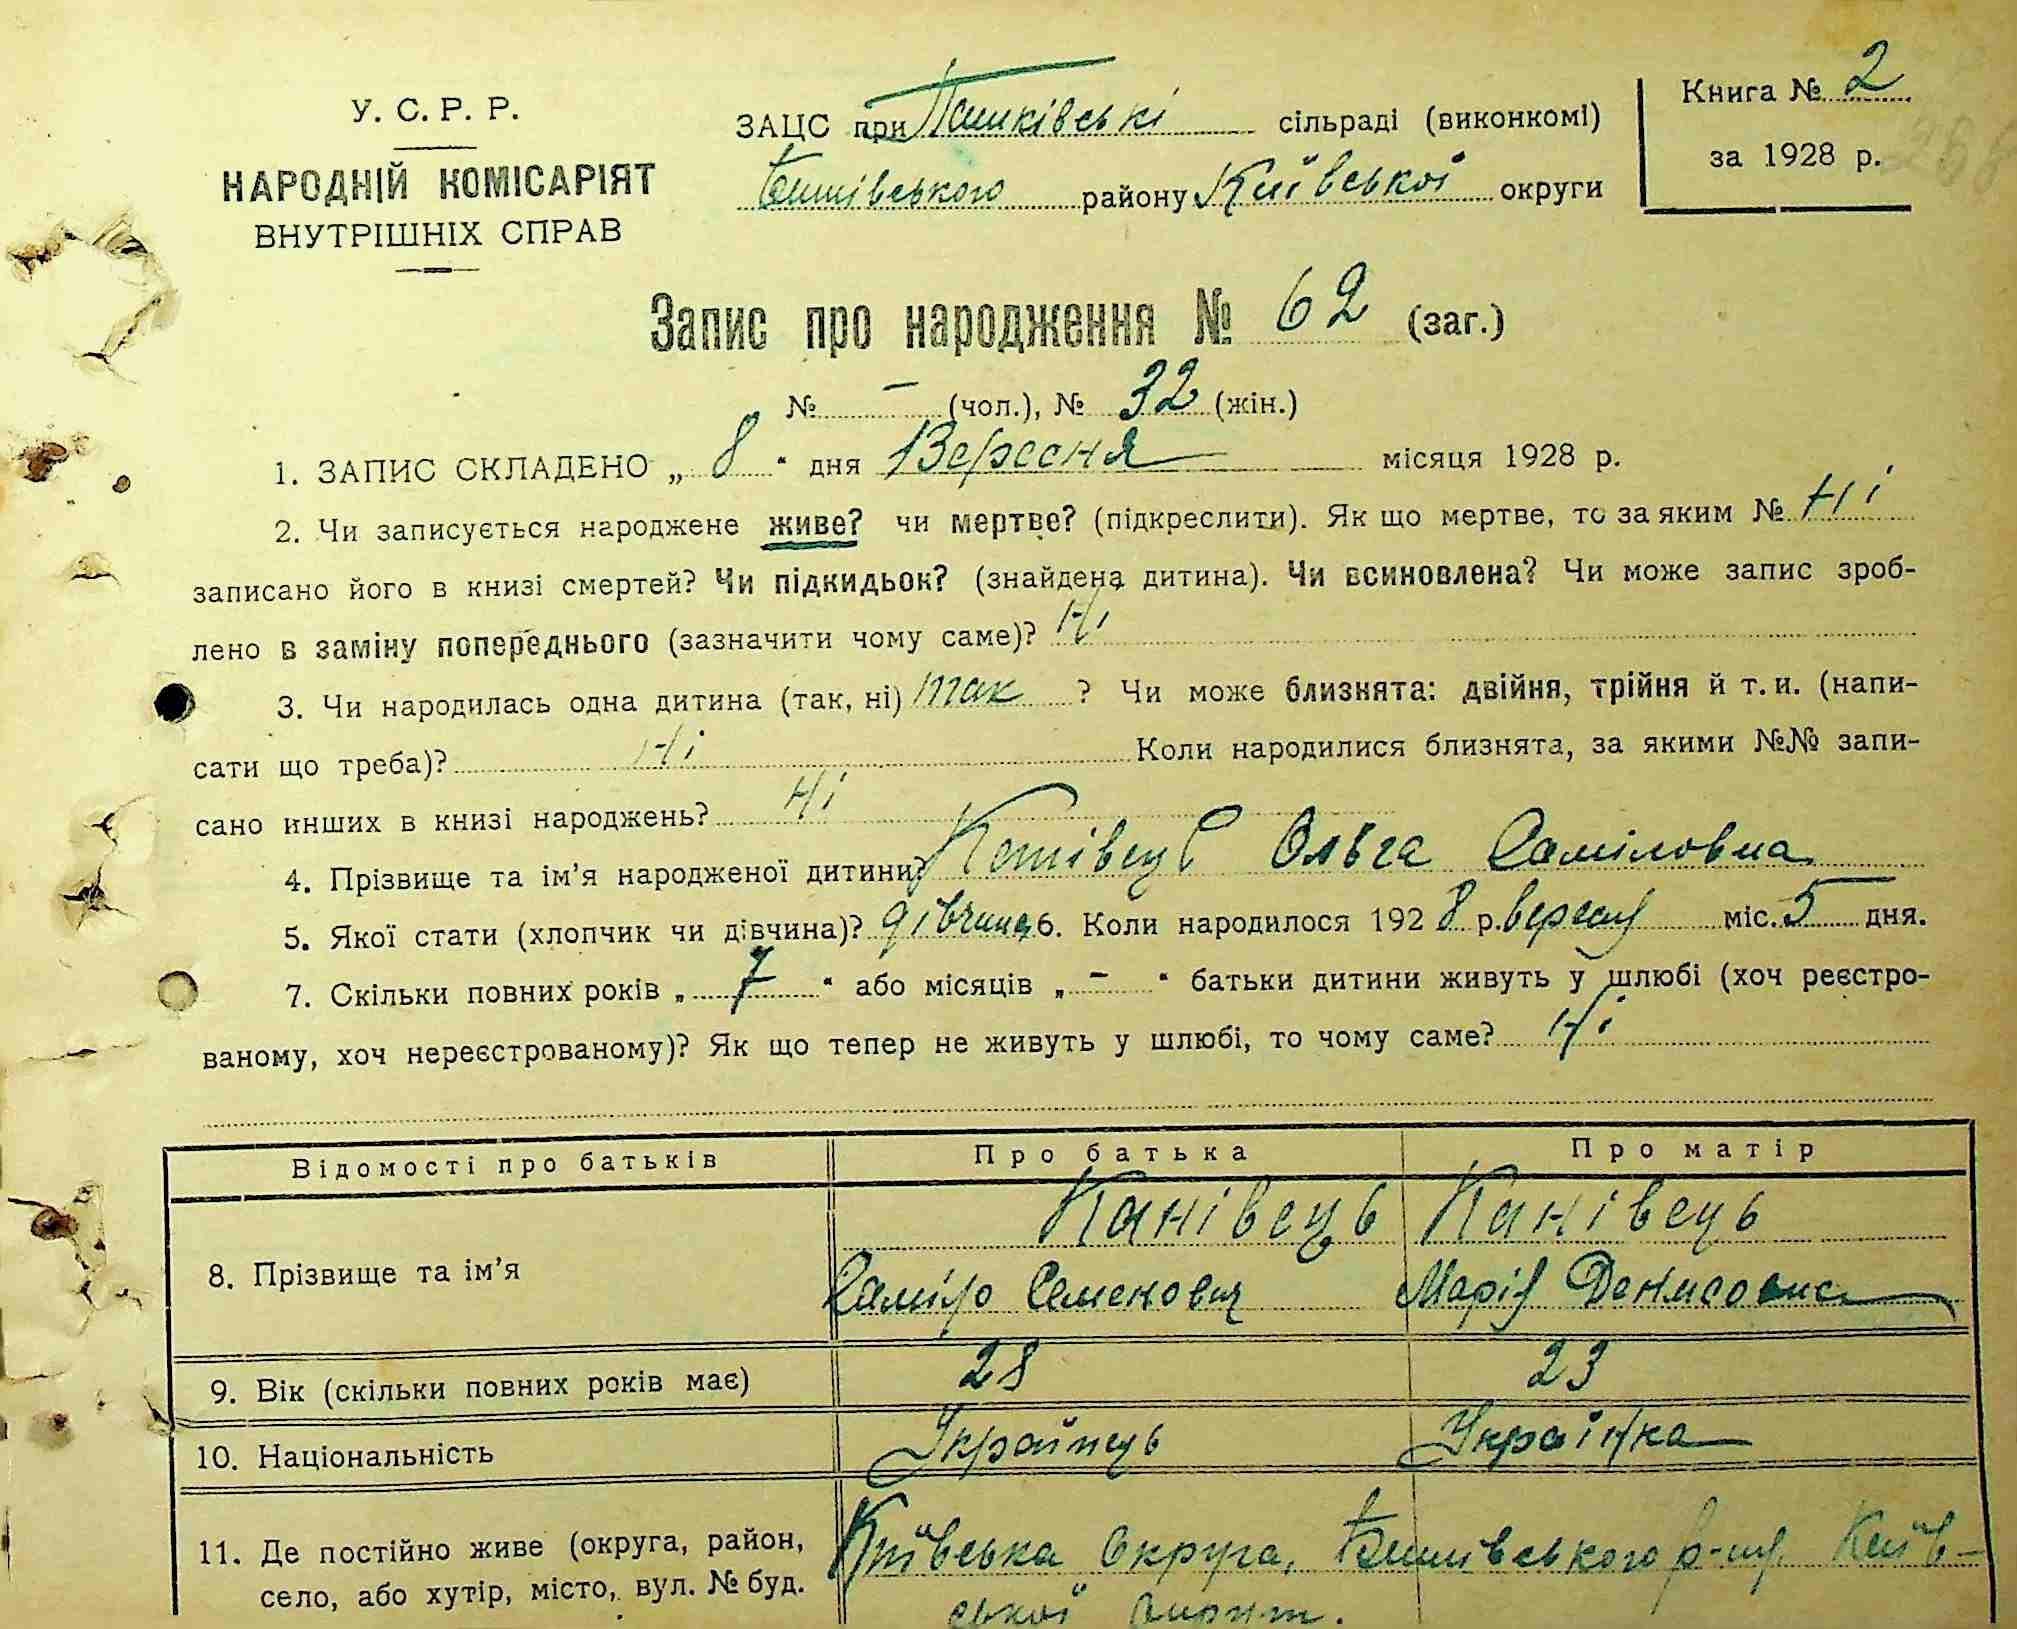 У. С. Р. Р.
НАРОДНІЙ КОМІСАРІЯТ
ВНУТРІШНІХ СПРАВ
ЗАЦС при Пашківські сільраді (виконкомі)
Бишівського району Київської округи
Книга № 2
за 1928 р.
Запис про народження № 62 (заг.)
№ – (чол.), № 32 (жін.)
1. ЗАПИС СКЛАДЕНО „ 8 “ дня Вересня місяця 1928 р.
2. Чи записується народжене живе? чи мертве? (підкреслити). Як що мертве, то за яким № Ні
записано його в книзі смертей? Чи підкидьок? (знайдена дитина). Чи всиновлена? Чи може запис зроб-
лено в заміну попереднього (зазначити чому саме)? Ні
3. Чи народилась одна дитина (так, ні) так ? Чи може близнята: двійня, трійня й т. и. (напи-
сати що треба)? Ні Коли народилися близнята, за якими №№ запи-
сано инших в книзі народжень? Ні
4. Прізвище та ім'я народженої дитини? Ольга Даміловна
5. Якої стати (хлопчик чи дівчина)? дівчина 6. Коли народилося 192 8 р. вересня міс. 5 дня.
7. Скільки повних років „ 7 “ або місяців „ – “ батьки дитини живуть у шлюбі (хоч реєстро-
ваному, хоч нереєстрованому)? Як що тепер не живуть у шлюбі, то чому саме? Ні
Відомості про батьків Про батька Про матір
8. Прізвище та ім'я Канівець Канівець
Семенович Марія Денисовна
9. Вік (скільки повних років має) 28 23
10. Національність Українець Українка
11. Де постійно живе (округа, район,
село, або хутір, місто, вул. № буд.
Київська округа, Бишівського р-ну Київ-
ської